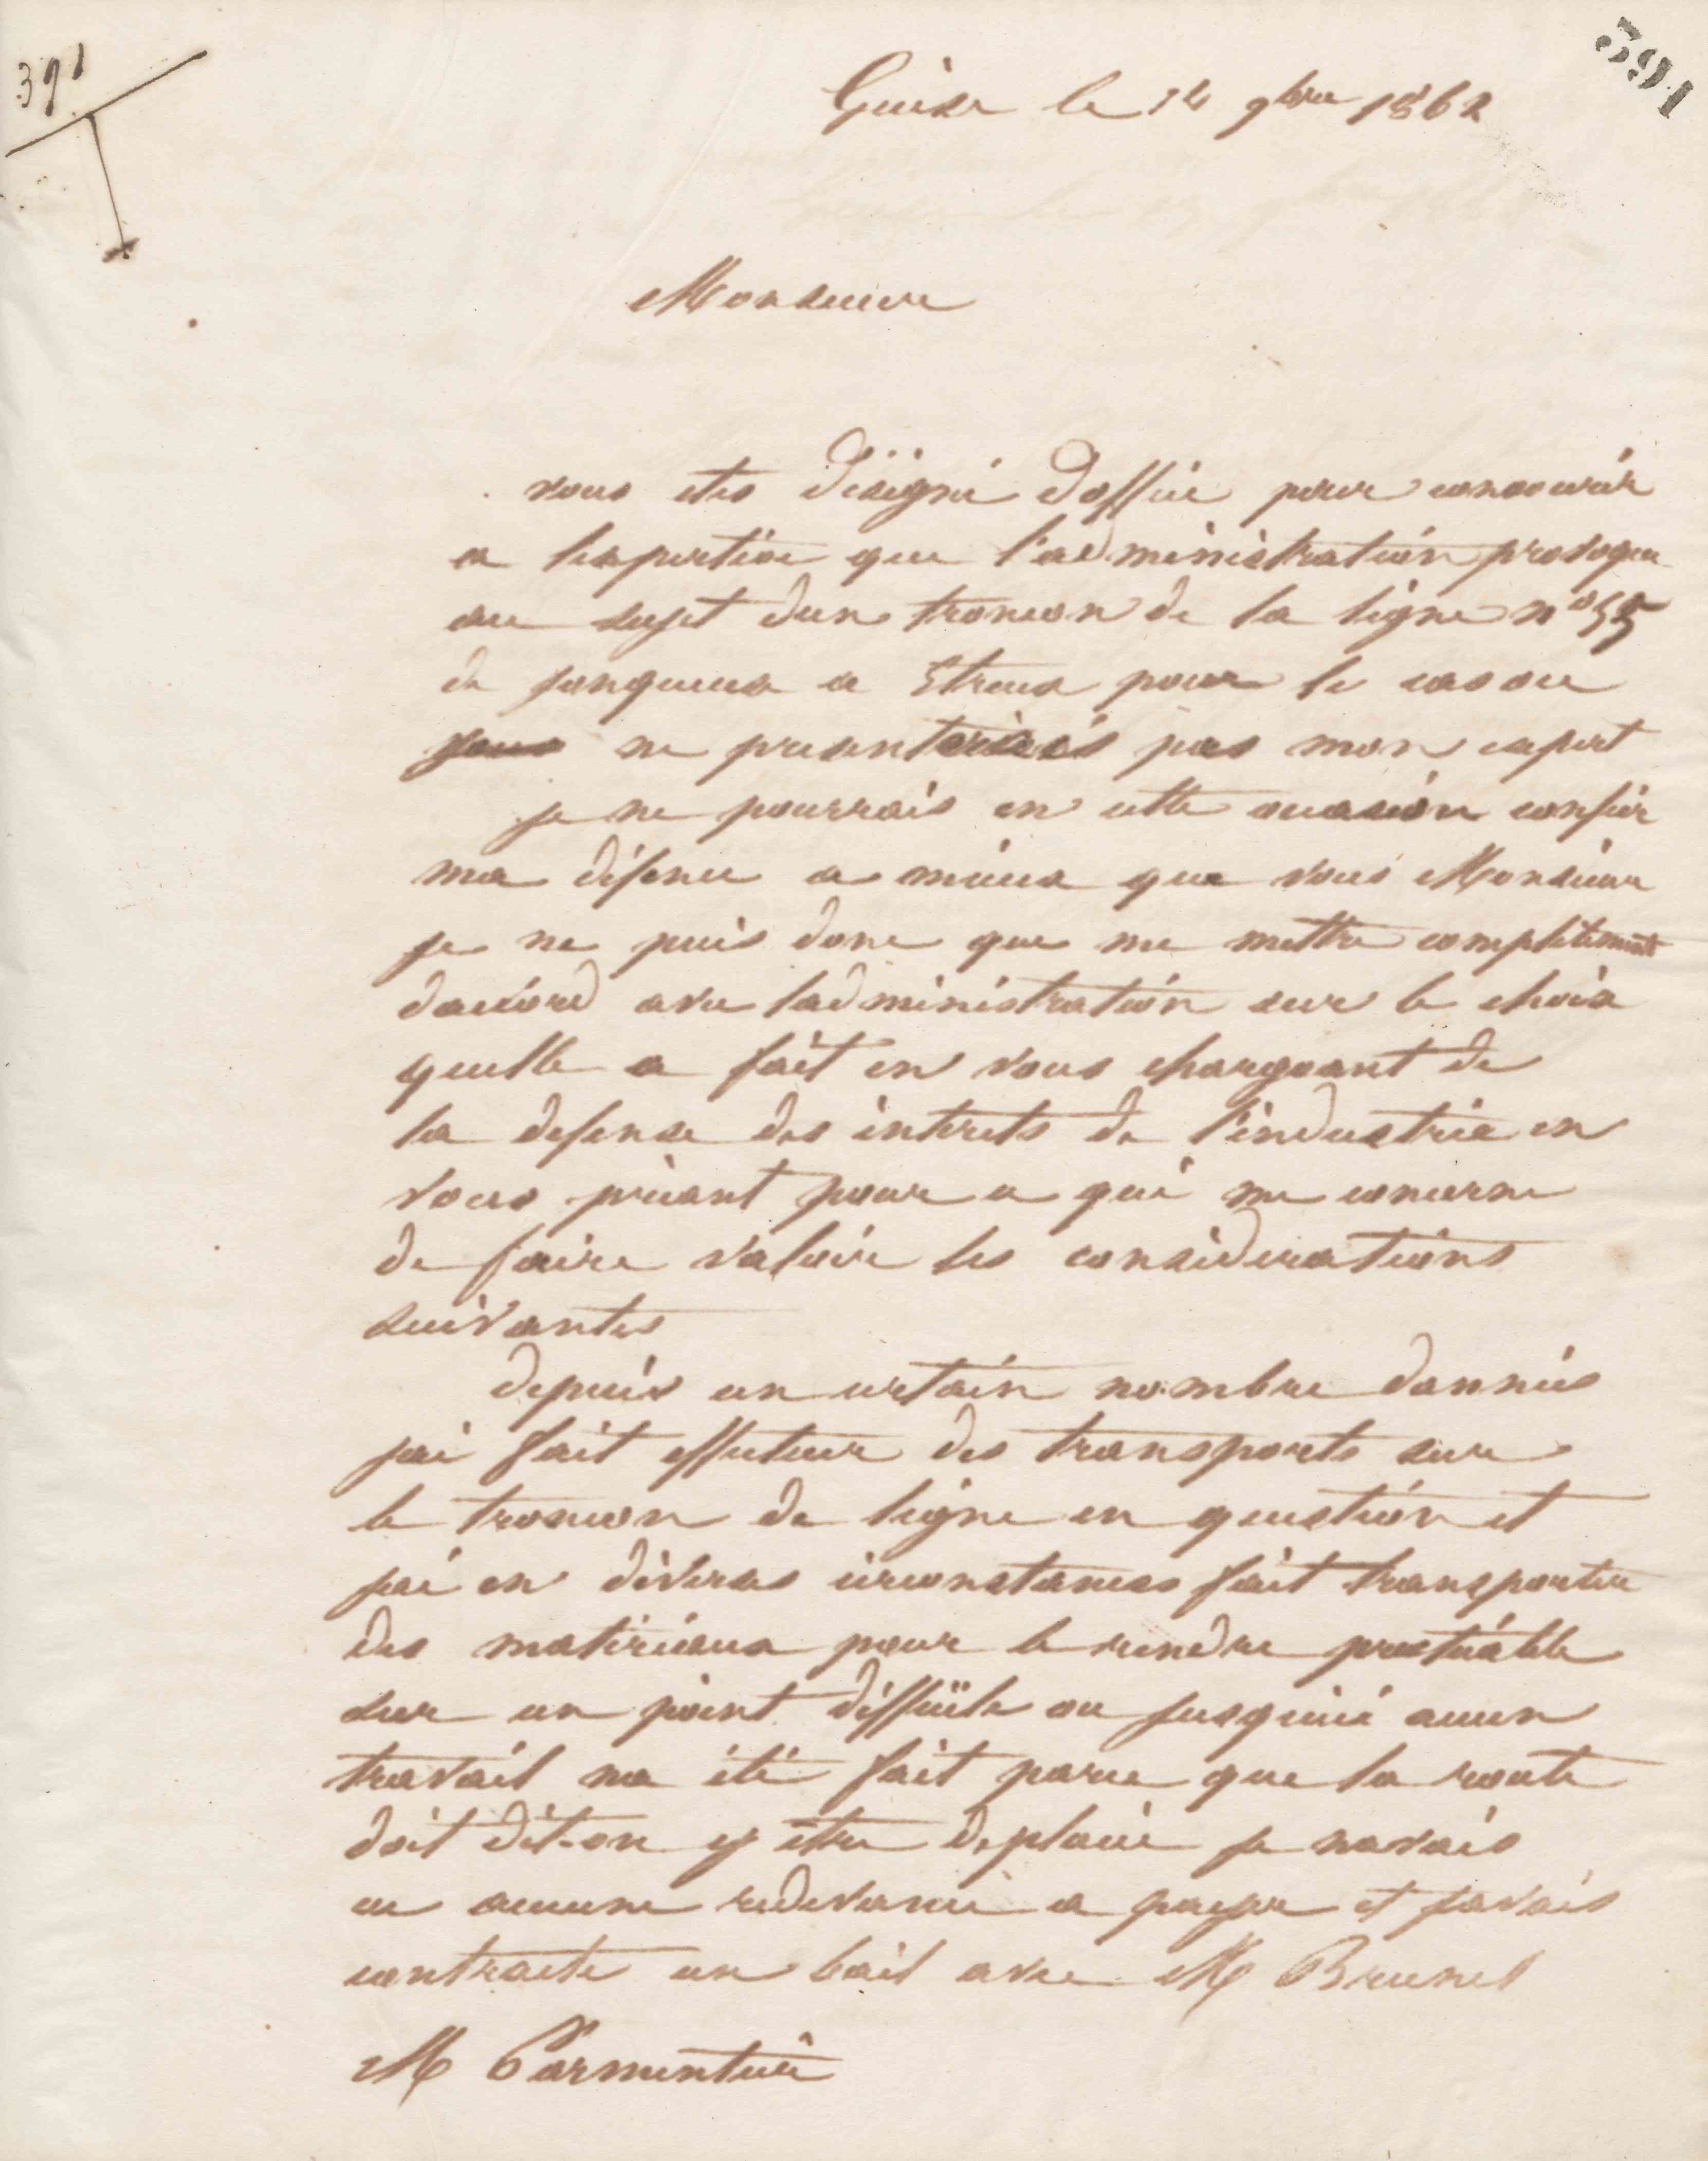 391
391
Guise le 14 9bre 1862
Monsieur
vous etes désigné doffice pour concourir
a lexpertise que l'administration provoque
au sujet dun troncon de la ligne no 55
de jonqueux a Etreux pour le cas ou
ne presenterais pas mon expert
je ne pourrais en cette occasion confier
ma défence a mieux que vous Monsieur
je ne puis donc que me mettre complètement
daccord avec ladministration sur le choix
quelle a fait en vous chargeant de
la defense des interets de l'industrie en
vous priant pour ce qui me concerne
de faire valoir les considerations
suivantes
depuis un certain nombre dannées
jai fait effectuer des transports sur
le troncon de ligne en question et
jai en diverses circonstances fait transporter
des matériaux pour le rendre praticable
sur un point difficile ou jusquici aucun
travail na été fait parce que la route
doit dit-on y être deplacée je navais
eu aucune redevance a payer et javais
contracté un bail avec Mr Brunel
Mr Parmentier